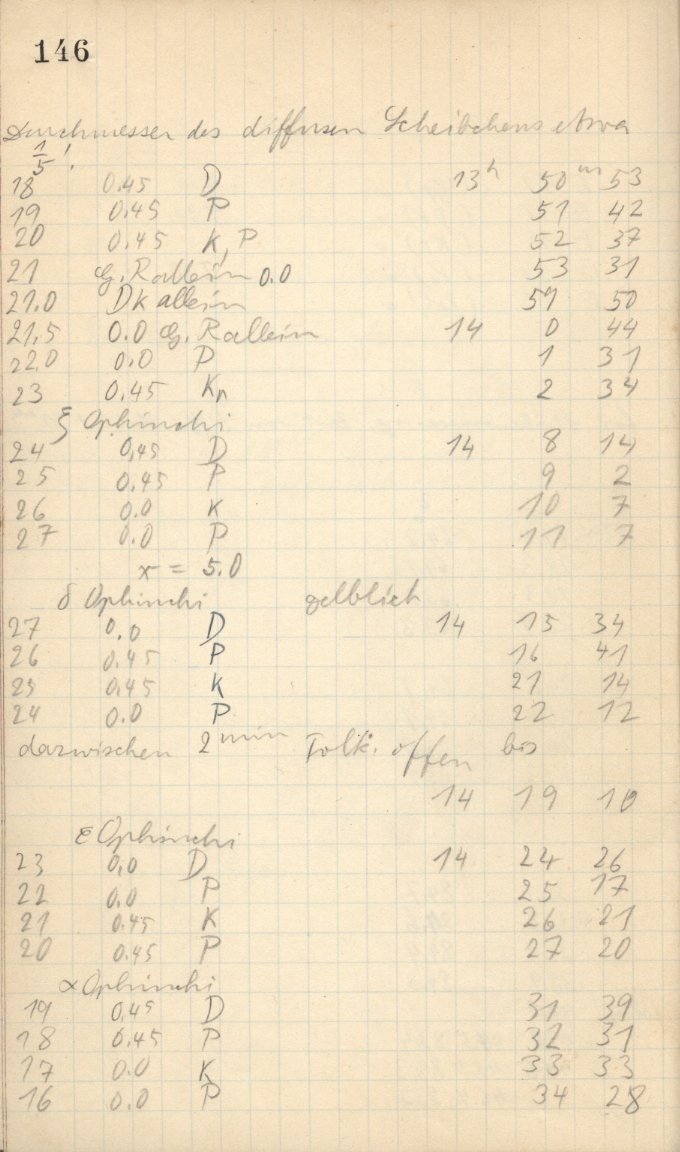 146
Durchmesser des diffusen Scheibchens etwa
1/5'.
18 0.45 D 13h 50m 53
19 0.45 P 51 42
20 0.45 K, P 52 37
21 G. R allein 0.0 53 31
21.0 DK allein 50
21,5 0.0 G. R allein 14 0 44
22.0 0.0 P 1 31
23 0.45 K 2 34
ξ Ophiuchi
24 0,45 D 14 8 14
25 0.45 P 9 2
26 0.0 K 10 7
27 0.0 P 11 7
x = 5.0
δ Ophiuchi gelblich
27 0.0 D 14 15 34
26 0.45 P 16 41
25 0.45 K 21 14
24 0.0 P 22 12
dazwischen 2min offen bis
14 19 10
ε Ophiuchi
23 0,0 D 14 24 26
22 0.0 P 25 17
21 0.45 K 26 21
20 0.45 P 27 20
α Ophiuchi
19 0.45 D 31 39
18 0.45 P 32 31
17 0.0 K 33 33
16 0.0 P 34 28